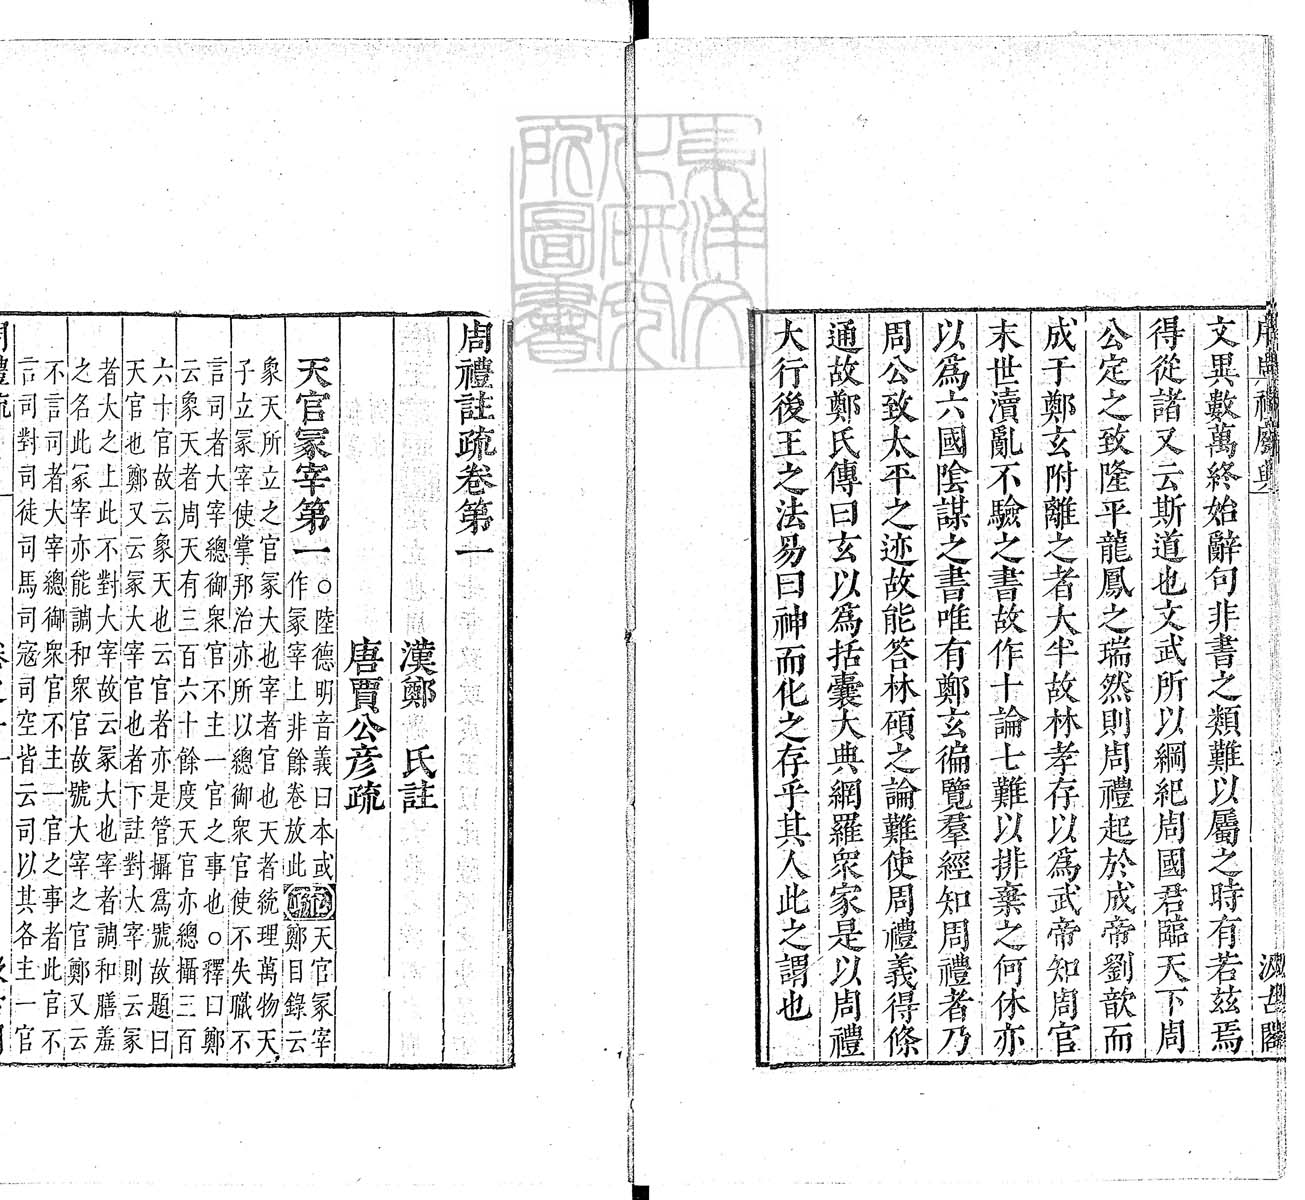 序周禮廢興
汲古閣
文異數萬終始辭句非書之類難以屬之時有若茲焉
得從諸又云斯道也文武所以綱紀周國君臨天下周
公定之致隆平龍鳳之瑞然則周禮起於成帝劉歆而
成于鄭玄附離之者大半故林孝存以爲武帝知周官
末世瀆亂不驗之書故作十論七難以排棄之何休亦
以爲六國陰謀之書唯有鄭玄徧覽羣經知周禮者乃
周公致太平之迹故能答林碩之論難使周禮義得條
通故鄭氏傳曰玄以爲括囊大典網羅衆家是以周禮
大行後王之法易曰神而化之存乎其人此之謂也
周禮註疏卷第一
漢鄭氏註
唐賈公彥疏
天官冢宰第一
○陸德明音義曰本或
作冢宰上非餘卷放此
疏
天官冢宰
鄭目錄云
象天所立之官冢大也宰者官也天者統理萬物天
子立冢宰使掌邦治亦所以總御衆官使不失職不
言司者大宰總御衆官不主一官之事也○釋曰鄭
云象天者周天有三百六十餘度天官亦總攝三百
六十官故云象天也云官者亦是管攝爲號故題曰
天官也鄭又云冢大宰官也者下註對大宰則云冢
者大之上此不對大宰故云冢大也宰者調和膳羞
之名此冢宰亦能調和衆官故號大宰之官鄭又云
不言司者大宰總御衆官不主一官之事者此官不
言司對司徒司馬司寇司空皆云司以其各主一官
周禮疏